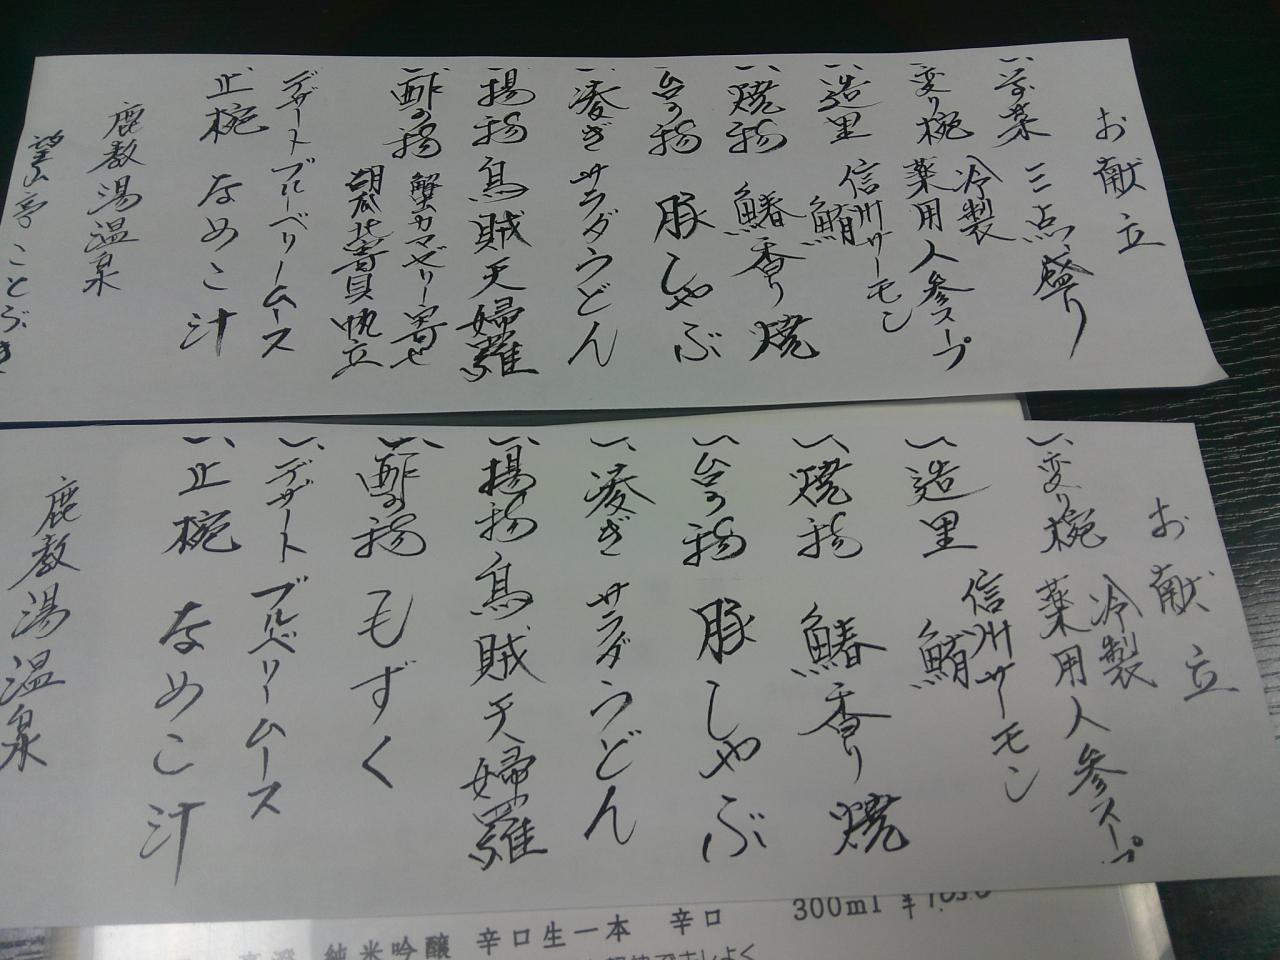 お献立
一、前菜 三点盛り
一、変り椀 冷製
薬用人参スープ
一、造里 信州サーモン
鮪
一、焼物 鰆香り焼
一、台の物 豚しゃぶ
一、凌ぎ サラダうどん
一、揚物 烏賊天婦羅
一、酢の物 蟹カマゼリー寄せ
胡瓜 北寄貝 帆立
デザート ブルーベリームース
止椀 なめこ汁
鹿教湯温泉
望山亭ことぶき
お献立
一、変り椀 冷製
薬用人参スープ
一、造里 信州サーモン
鮪
一、焼物 鰆香り焼
一、台の物 豚しゃぶ
一、凌ぎ サラダうどん
一、揚物 烏賊天婦羅
一、酢の物 もずく
一、デザート ブルーベリームース
一、止椀 なめこ汁
鹿教湯温泉
純米吟醸 辛口生一本 辛口 300ml